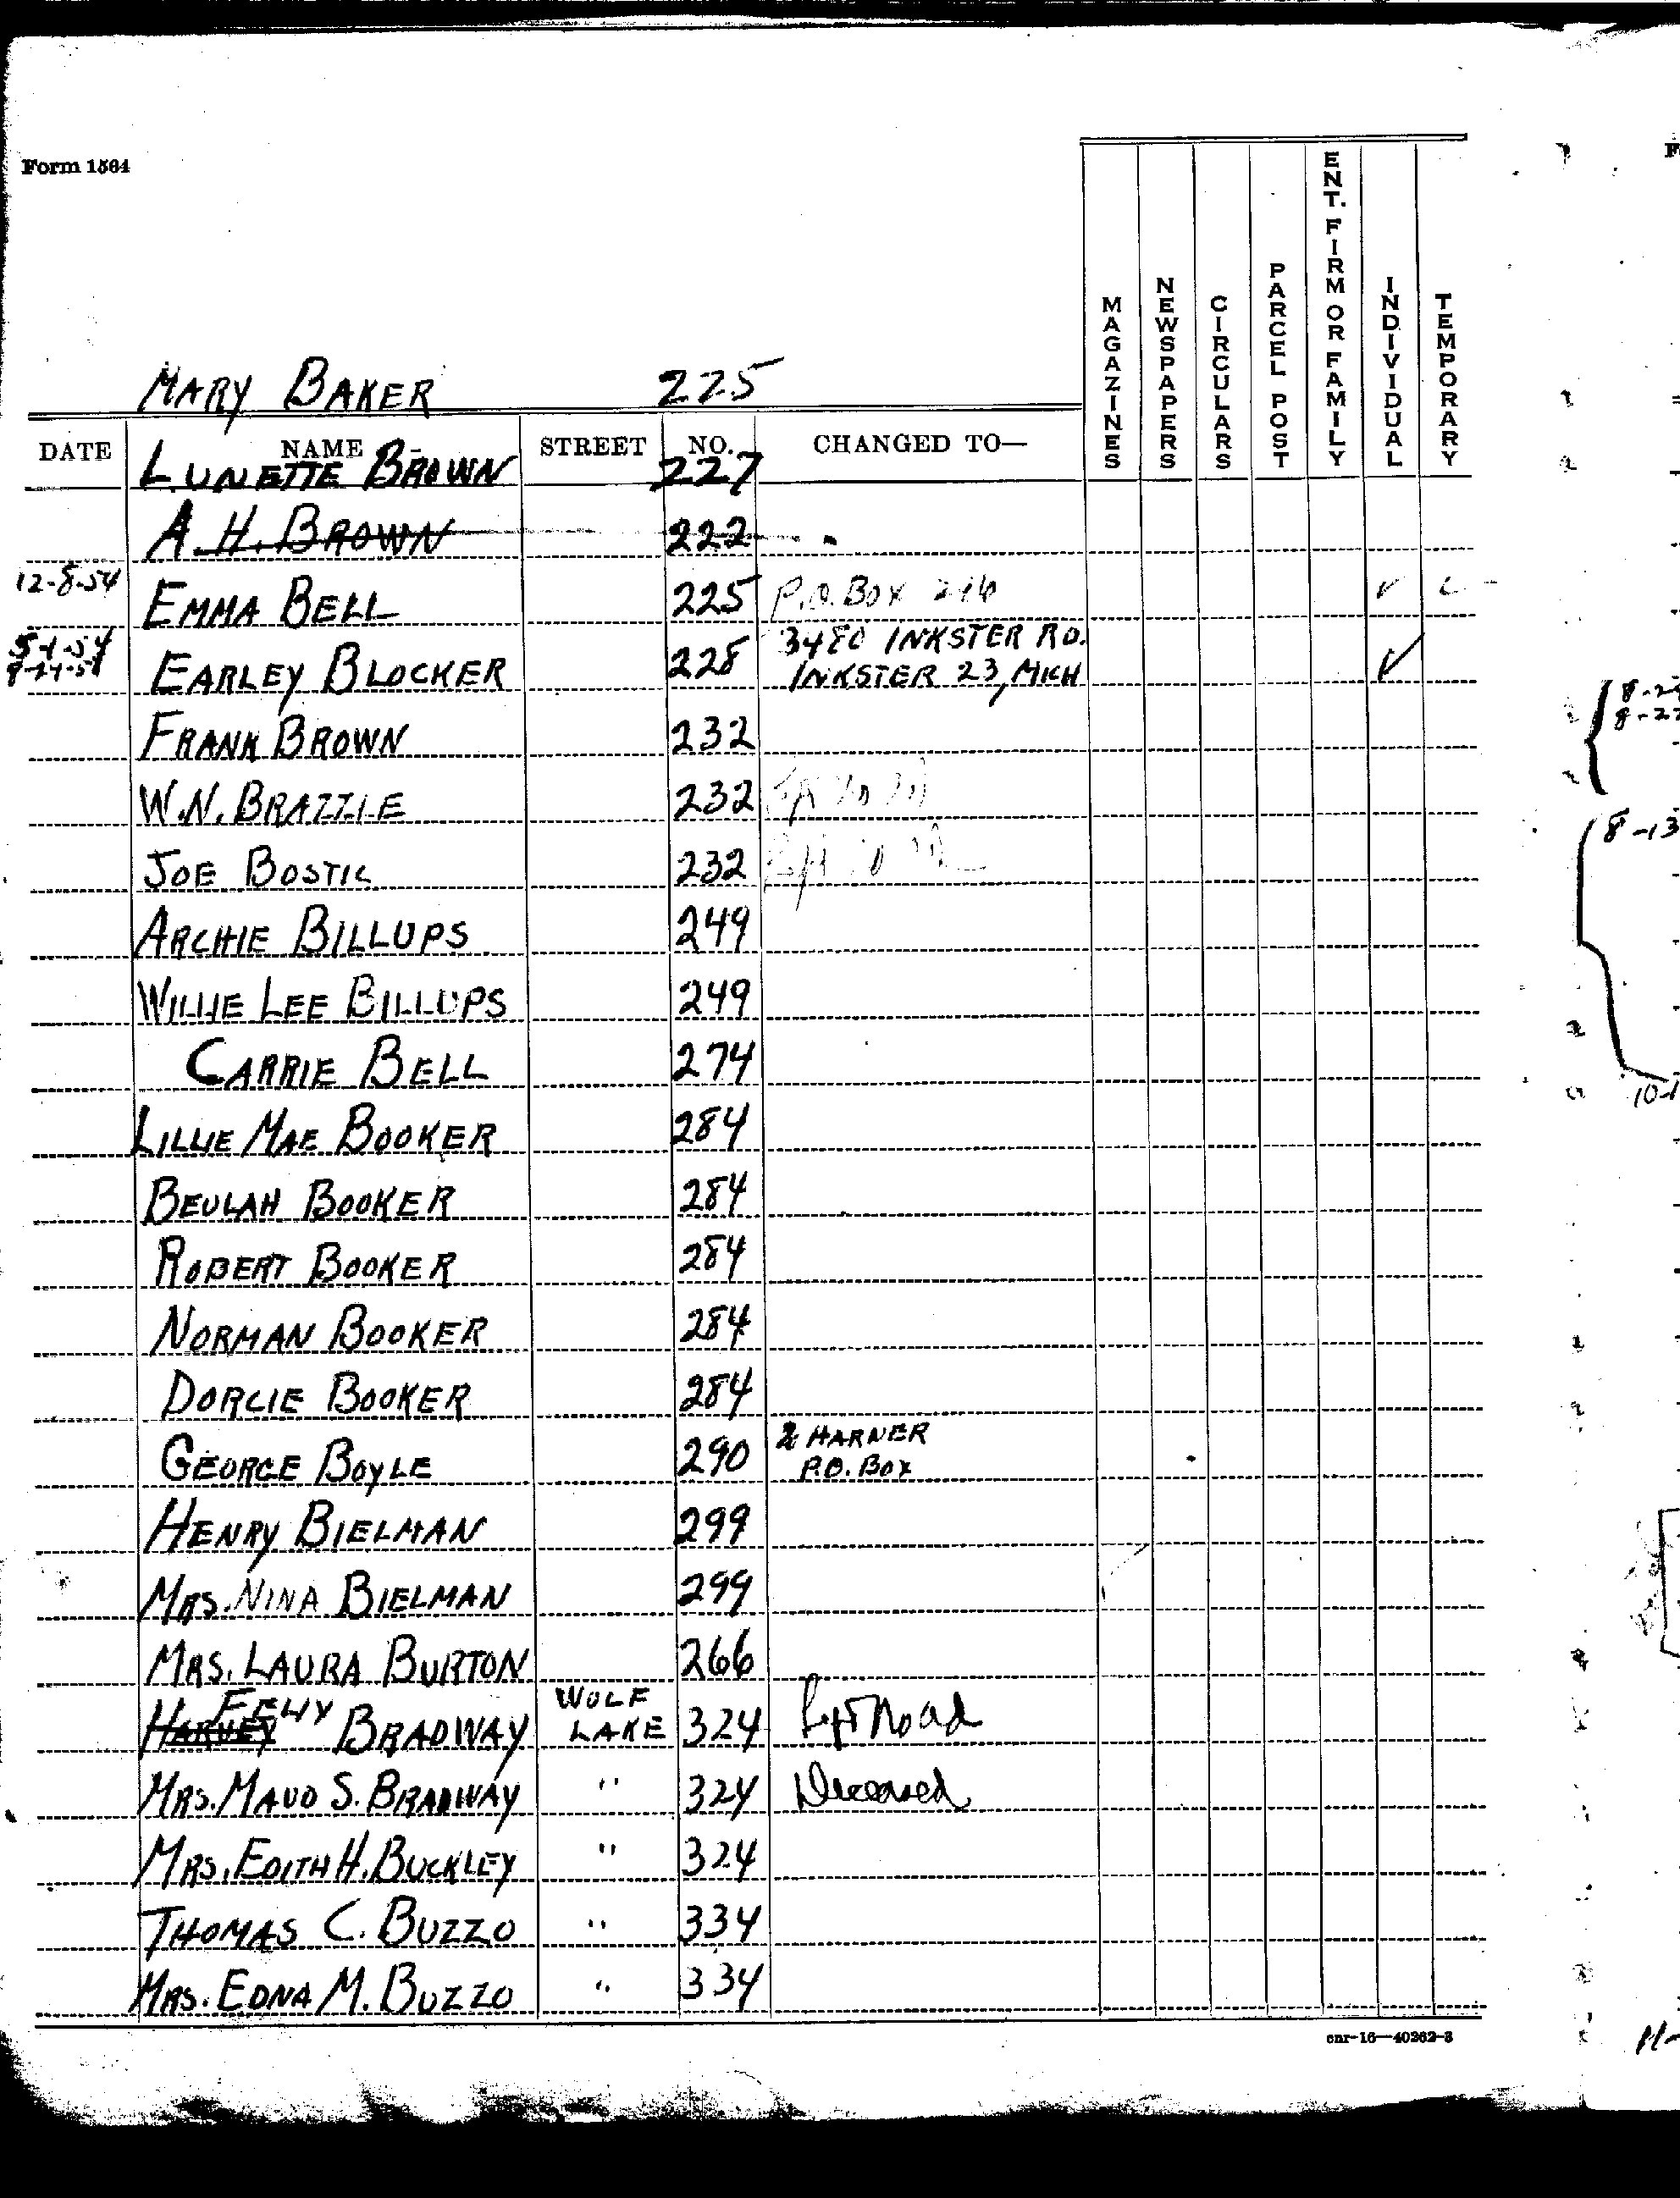 Form 1564
MAGAZINES NEWSPAPERS CIRCULARS PARCEL POST ENT. FIRM OR FAMILY INDIVIDUAL TEMPORARY
MARY BAKER 225
DATE NAME STREET NO. CHANGED TO—
LUNETTE BROWN 227
A.H. BROWN 222
12-8-54 EMMA BELL 225 P.O. BOX 246 ✓
5-1-54
EARLEY BLOCKER 228 3480 INKSTER RD. ✓
INKSTER 23, MICH
FRANK BROWN 232
W.N. BRAZZLE 232
JOE BOSTIC 232
ARCHIE BILLUPS 249
WILLIE LEE BILLUPS 249
CARRIE BELL 274
LILLIE MAE BOOKER 284
BEULAH BOOKER 284
ROBERT BOOKER 284
NORMAN BOOKER 284
DORCIE BOOKER 284
GEORGE BOYLE 290 HARNER
P.O. BOX
HENRY BIELMAN 299
MRS. NINA BIELMAN 299
MRS. LAURA BURTON 266
HARVEY BRADWAY WOLF LAKE 324
MRS. MAUD S. BRADWAY " 324 Deceased
MRS. EDITH H. BUCKLEY " 324
THOMAS C. BUZZO " 334
MRS. EDNA M. BUZZO " 334
cnr-16—40262-3
8-13